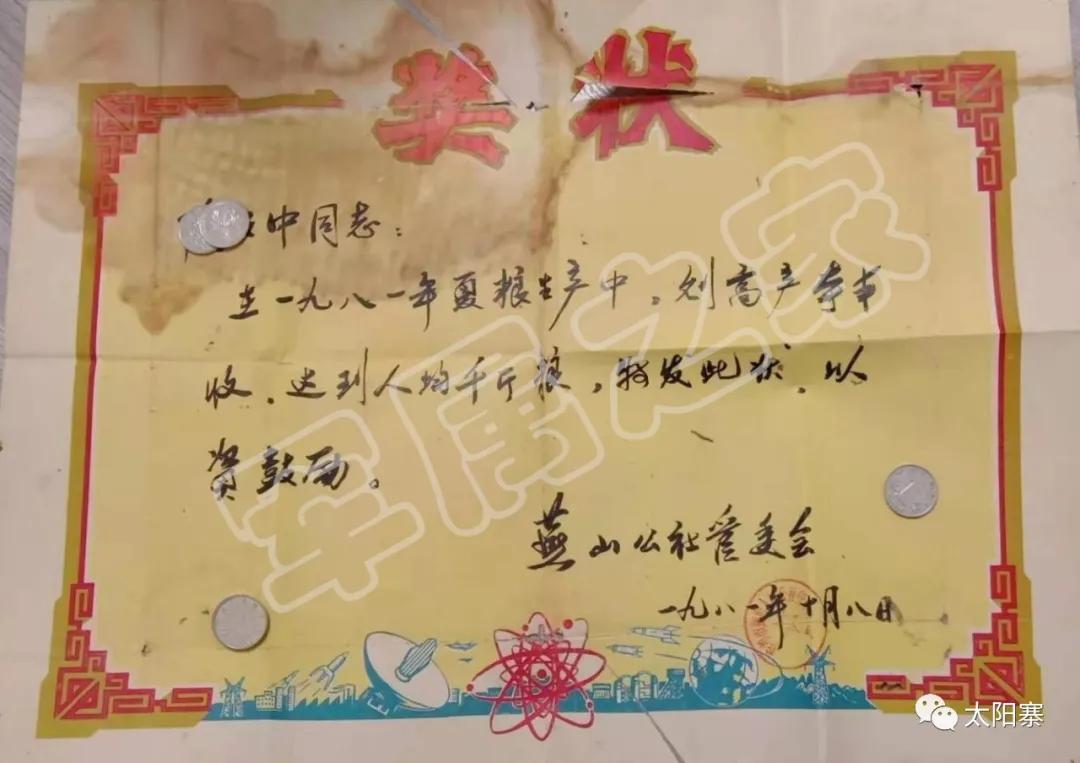 奖状
中同志：
在一九八一年夏粮生产中，创高产夺丰
收，达到人均千斤粮，特发此状，以
资鼓励。
燕山公社管委会
一九八一年十月八日
军庸之家
太阳寨